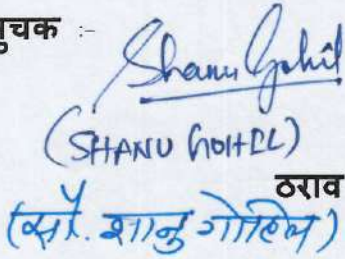 सुचक :-
Shanu Gohil
(SHANU GOHIL)
ठराव
(सौ. शानु गोहिल)